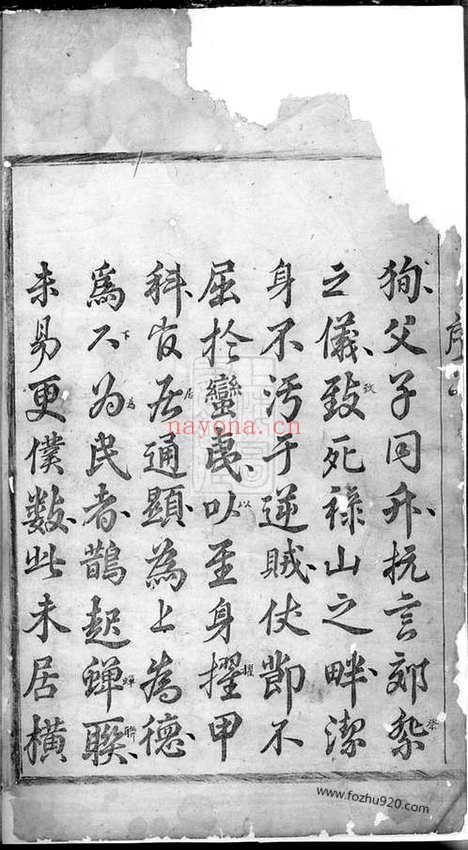 序
狥父子同升抗言郊祭
之儀致死祿山之畔潔
身不汚于逆賊仗節不
屈扵蠻夷以至身擢甲
科官居通顯為上為德
爲下为民者鵲起蟬聯
未易更僕數此未居橫
祭
致
以
擢
居
下
為
蟬
聯
nayona.cn
www.fozhu920.com